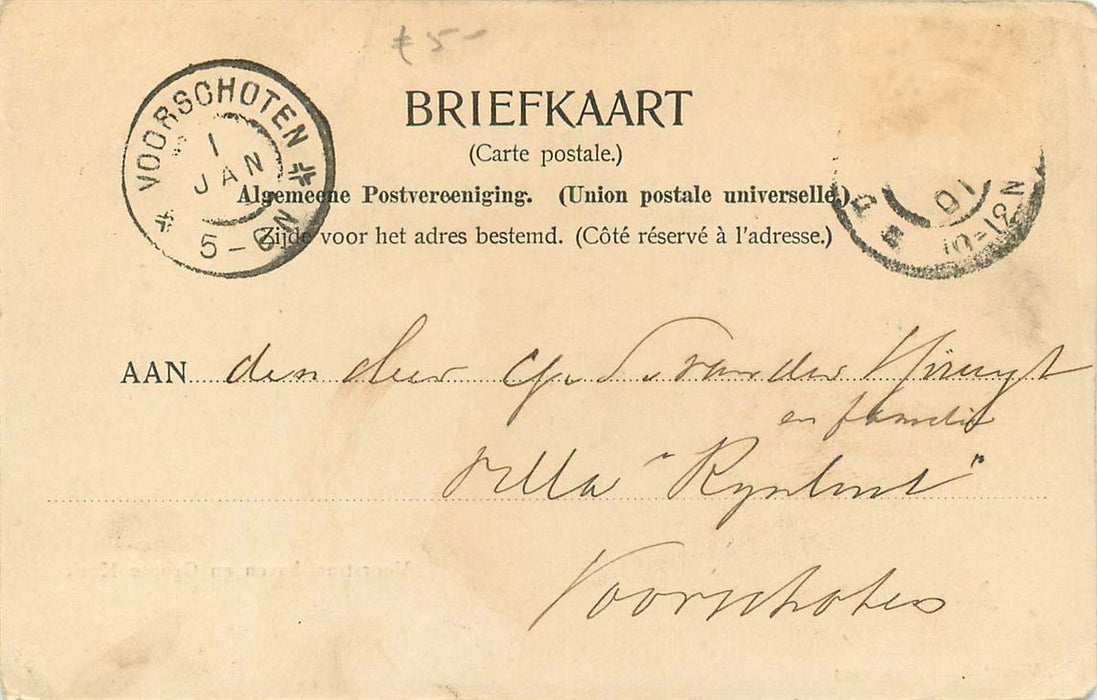 ₤ 5-
VOORSCHOTEN
1
JAN
5-6N
BRIEFKAART
(Carte postale.)
Algemeene Postvereeniging. (Union postale universelle.)
Zijde voor het adres bestemd. (Côté réservé à l'adresse.)
01
10-12N
AAN den Heer van der
en familie
Villa "
Voorschoten